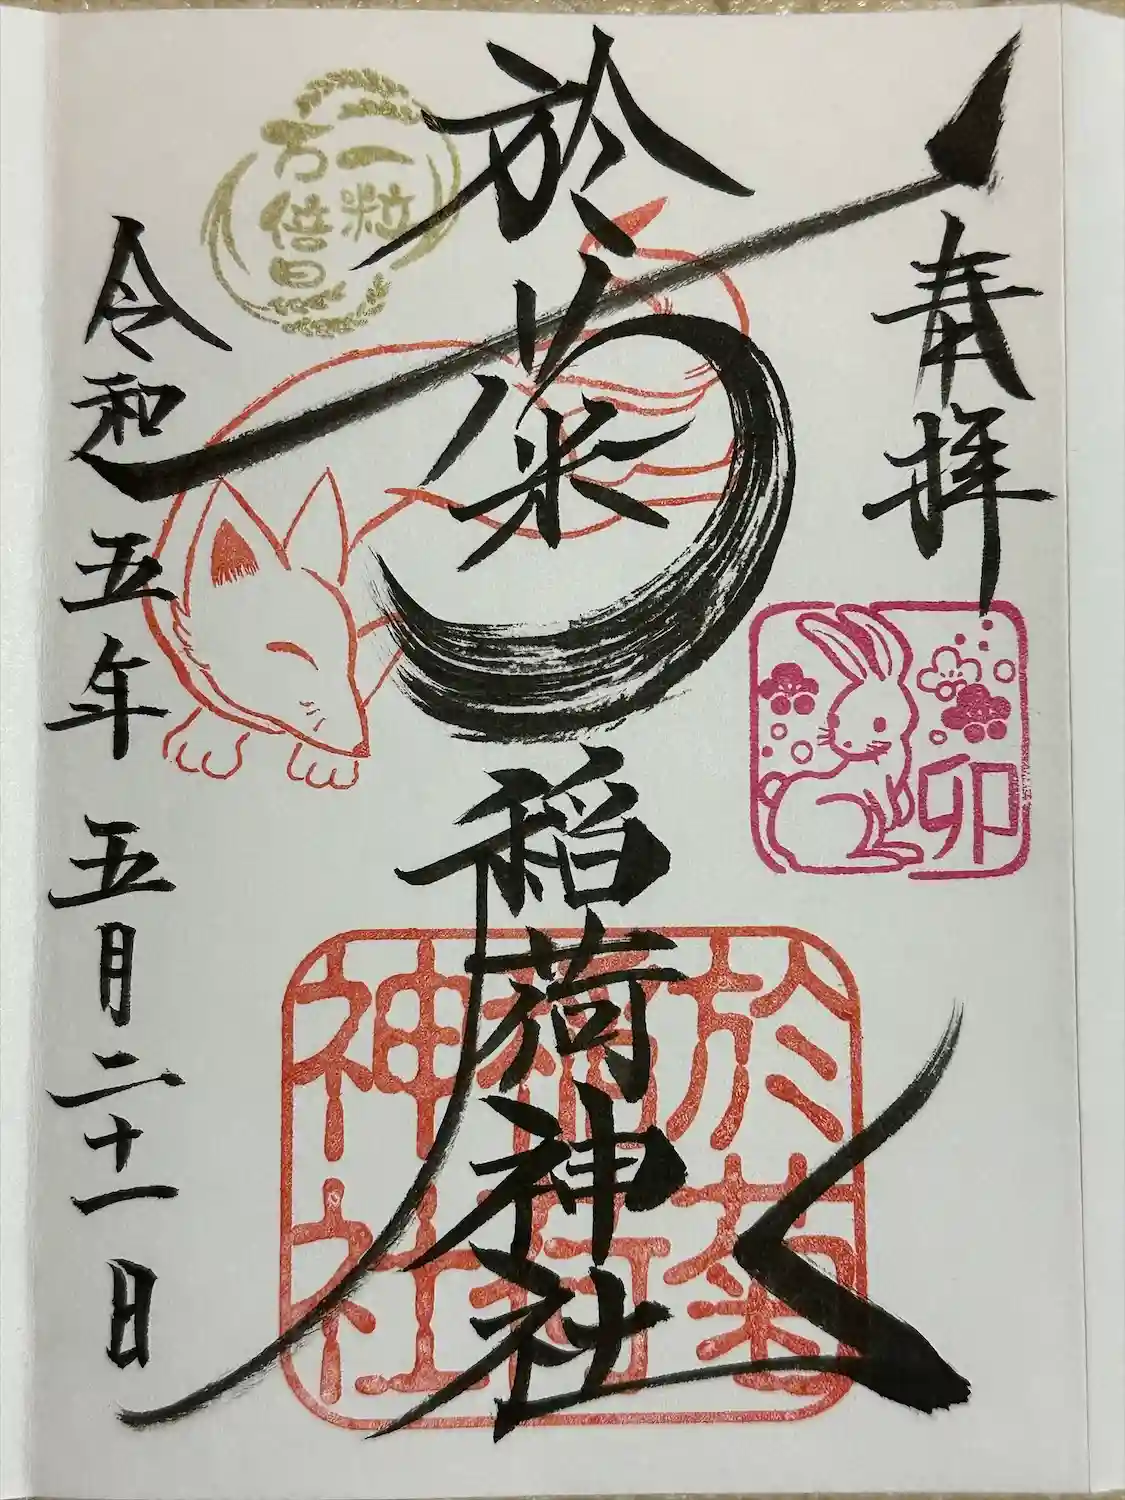 奉拝
卯
於菊稲荷神社
於菊
稲荷
神社
一粒
万倍日
令和五年 五月二十一日